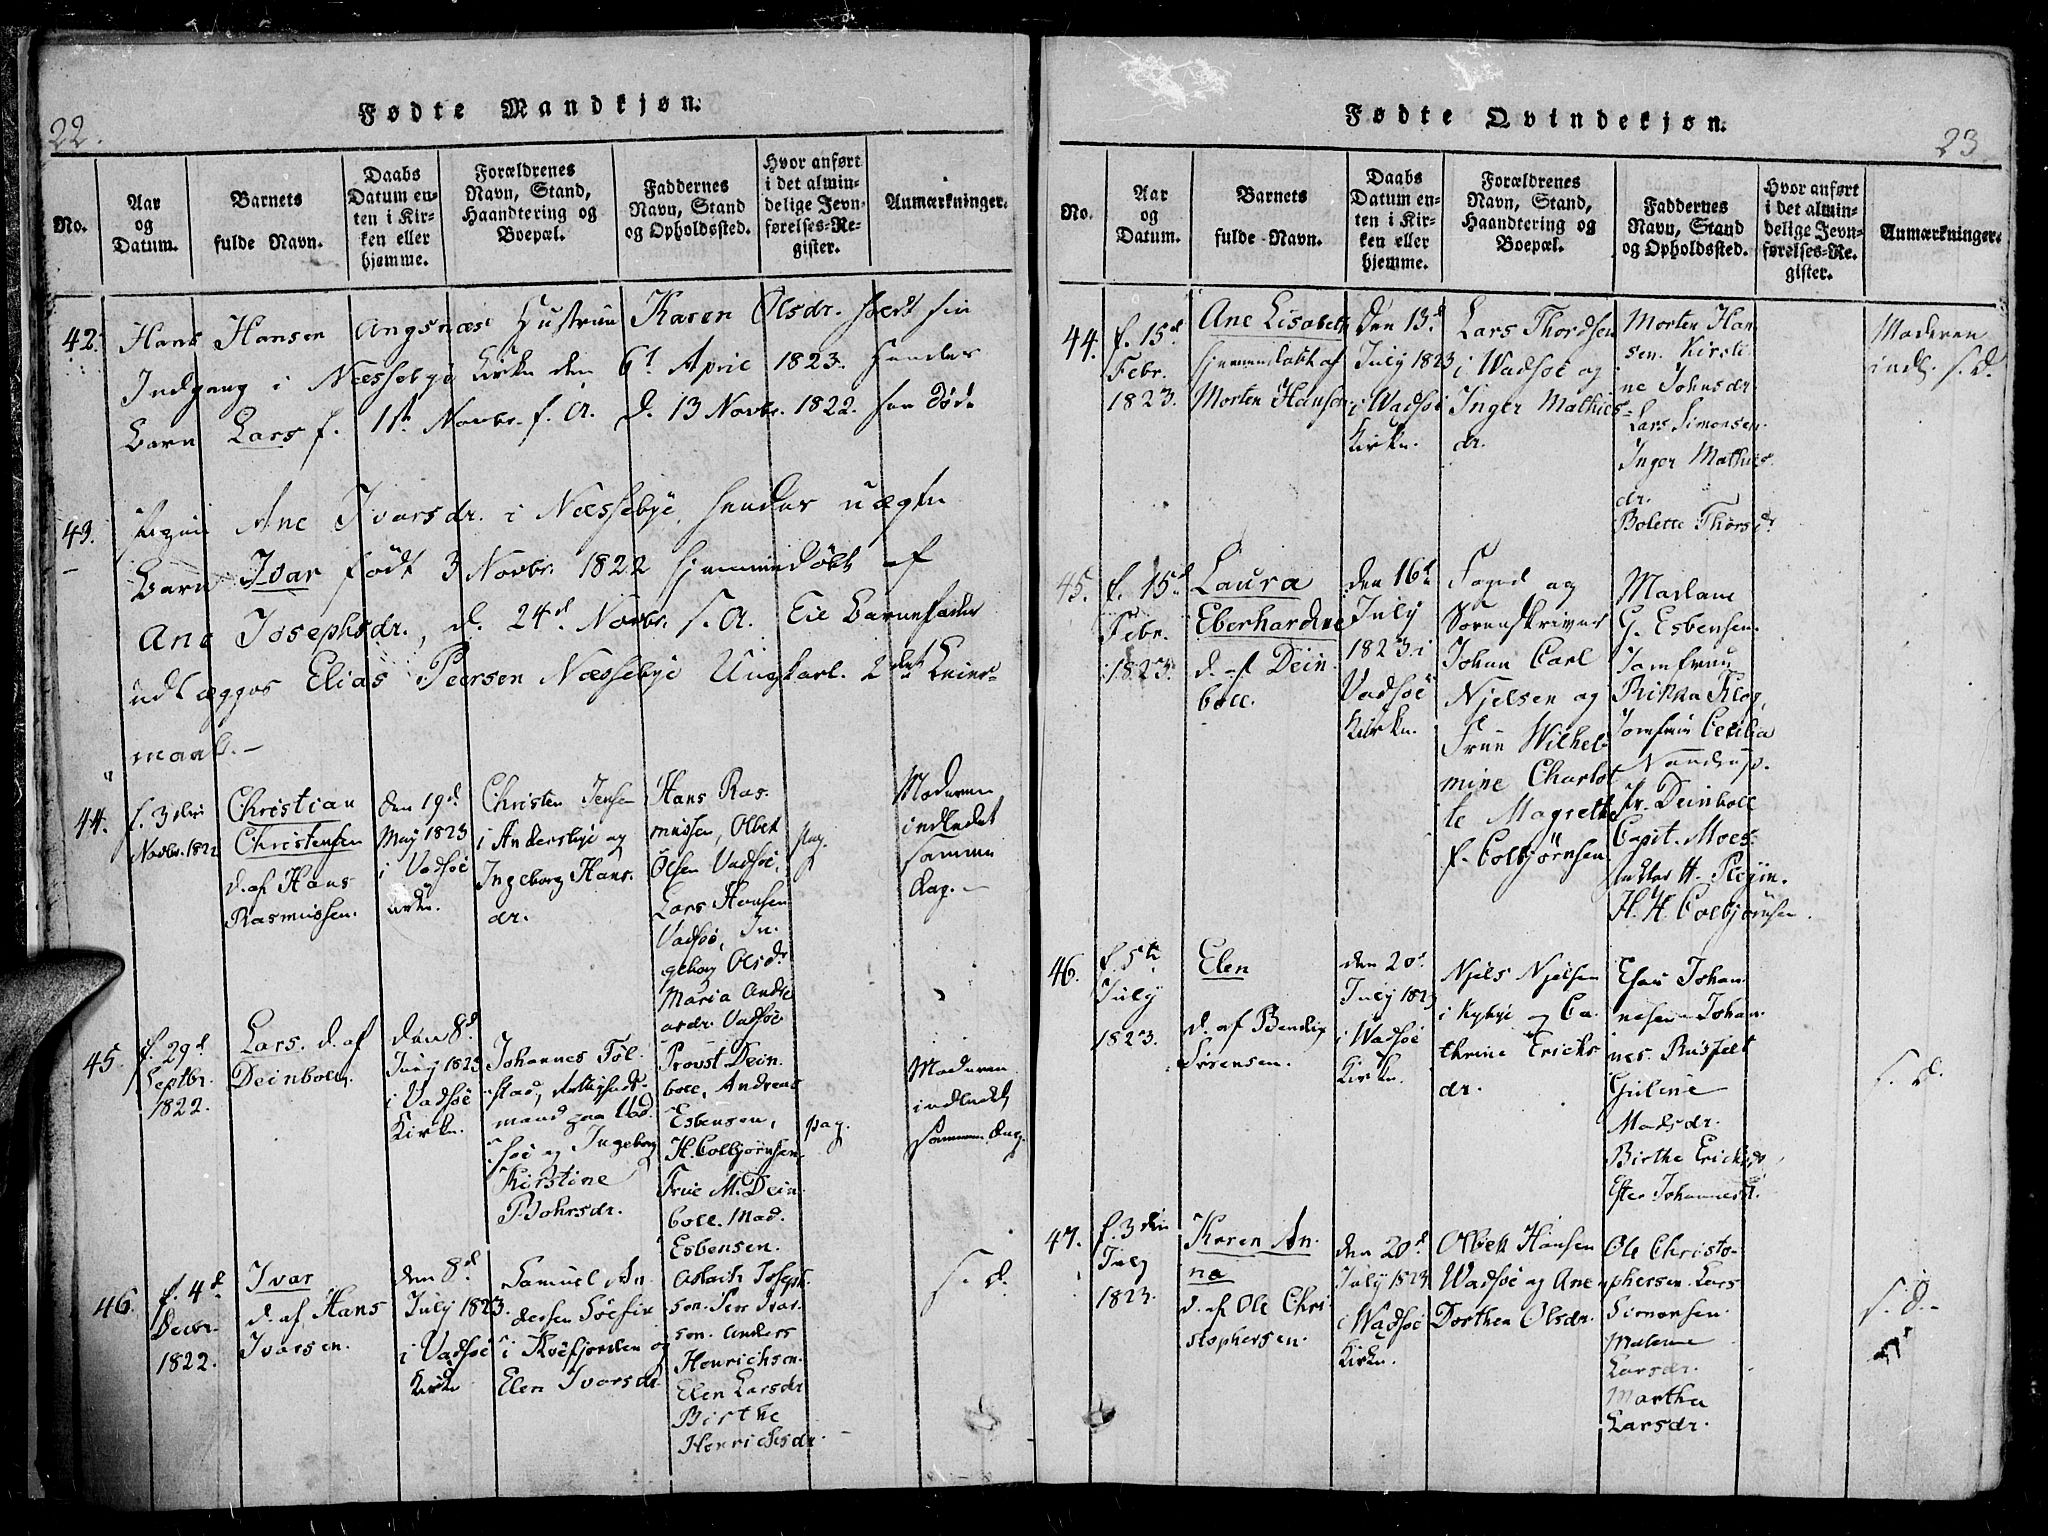 22.
Fødte Mandkjøn.
No.
Aar
og
Datum.
Barnets
fulde Navn.
Daabs
Datum en-
ten i Kir-
ken eller
hjemme.
Forældrenes
Navn, Stand,
Haandtering og
Boepæl.
Faddernes
Navn, Stand
og Opholdssted.
Hvor anført
i det almin-
delige Jevn-
førelses-Re-
gister.
Anmærkninger.
42. Hans Hansen Angsnæs Hustrue Karen Olsdr. holdt sin
Indgang i Næssebye Kirke den 6t April 1823. hendes
Barn Lars f. 1ste Novbr. f. A. d. 13 Novbr. 1822. son døde
43. Pigen Ane Ivarsdr. i Næssebye, hendes uægte
Barn Ivar født 3 Novbr. 1822 hjemmedøbt af
Ane Josephsdr., d. 24d Novbr. s. A. Til Barnefader
udlægges Elias Peersen Næssebye Ungkarl. 2det Leier-
maal.
44.
f. 3die
Novbr. 1822
Christian
Christensen
d. af Hans
Rasmussen.
den 19d
May 1823
i Vadsøe
Kirke.
Christen Jensen
i Andersbye og
Ingeborg Hans.
dr.
Hans Ras.
mussen, Olbet
Olsen Vadsøe,
Lars Hansen
Vadsøe, In.
geborg Olsdr
Maria Andre
asdr. Vadsøe
pag.
Moderen
indledet
samme
Dag.
45.
f. 29d
Septbr.
1822.
Lars. d. af
Deinboll.
den 8d
July 1823
i Vadsøe
Kirke.
Johannes Føl.
stad,
mand paa Vad.
søe og Ingeborg
Kirstine
Rohrsdr.
Provst Dein.
boll, Andreas
Esbensen,
H. Colbjørnsen
Frue M. Dein.
boll. Mad.
Esbensen.
pag.
Moderen
indledet
samme Dag.
46.
f. 4d
Decbr.
1822.
Ivar
d. af Hans
Ivarsen.
den 8d
July 1823.
i Vadsøe
Kirke
Samuel An.
dersen Søefin
i Kjøfjorden og
Elen Ivarsdr.
Aslach Joseph.
sen. Per Ivar.
sen. Anders
Henrichsen.
Elen Larsdr
Birthe
Henrichsdr.
s. d.
Fødte Qvindekjøn.
23
No.
Aar
og
Datum.
Barnets
fulde Navn.
Daabs
Datum en-
ten i Kir-
ken eller
hjemme.
Forældrenes
Navn, Stand,
Haandtering og
Boepæl.
Faddernes
Navn, Stand
og Opholdssted.
Hvor anført
i det almin-
delige Jevn-
førelses-Re-
gister.
Anmærkninger.
44.
f. 15d
Febr.
1823.
Ane Lisabeth
hjemmedøbt af
Morten Hansen.
Den 13d
July 1823
i Wadsøe
Kirke.
Lars Thordsen
i Wadsøe og
Inger Mathies-
dr.
Morten Han
sen. Kirsti
ne Johnsdr
Lars Simonsen.
Inger Mathies.
dr.
Bolette Thorsdr
Moderen
indl. s. d.
45.
f. 15d
Febr.
1823.
Laura
Eberhardine
d. af Dein
boll.
den 16d
July
1823 i
Vadsøe
Kirke.
Foged og
Sorenskriver
Johan Carl
Nielsen og
Frue Wilhel
mine Charlot
te Magrethe
f. Colbjørnsen
Madame
G. Esbensen.
Jomfrue
Rikka Klog,
Jomfrue Cecilia
Nandrup.
Pr. Deinboll
Capit. Moes.
H. Pleÿm.
H. H. Colbjørnsen.
46.
f. 5te
July
1823.
Elen
d. af Bendix
Sørensen.
den 20d
July 1823
i Wadsøe
Kirke.
Niels Nielsen
i Kybye og Ca
thrine Erichs
dr.
Esau Johan
nesen Johan.
nes. Rusfelt
Guline
Madsdr.
Birthe Erichsdr
Ester Johannesd.
s. d.
47.
f. 3die
July
1823.
Karen An.
na
d. af Ole Chri
stophersen.
den 20d
July 1823
i Wadsøe
Kirke.
Olbett Hansen
Wadsøe og Ane
Dorthea Olsdr.
Ole Christo-
phersen. Lars
Simonsen.
Malene
Larsdr.
Martha
Larsdr.
s. d.